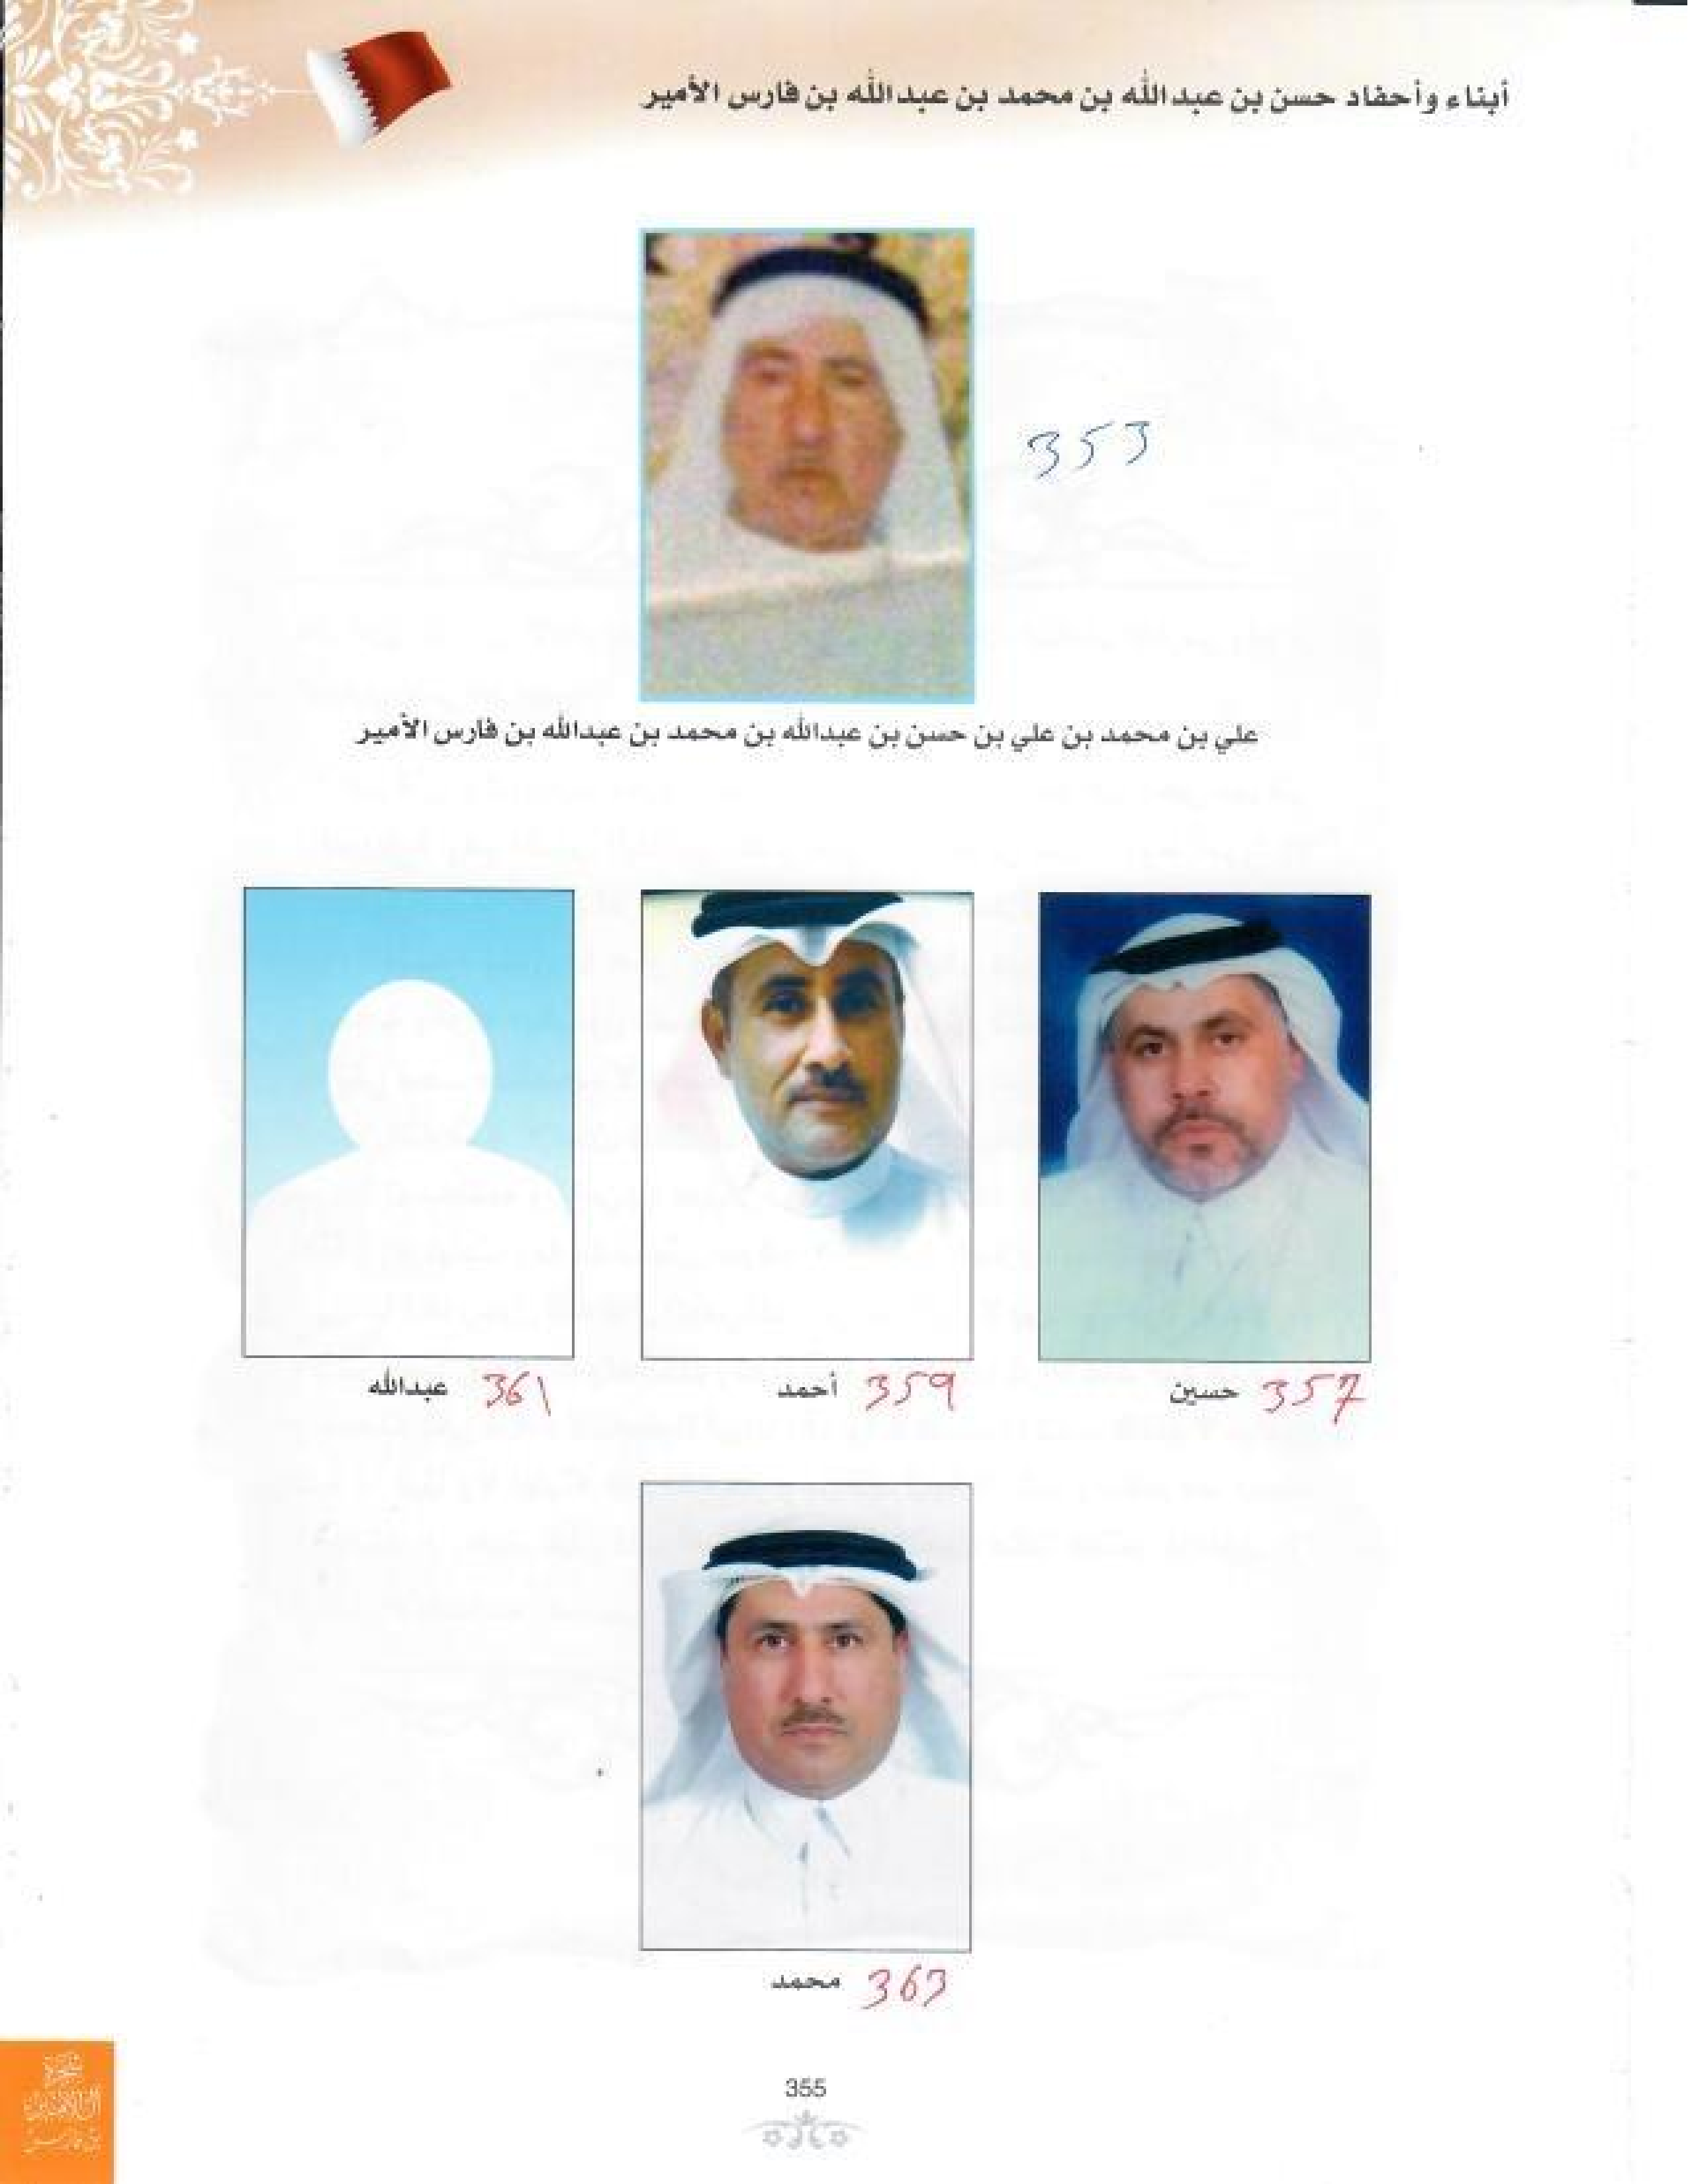 أبناء وأحفاد حسن بن عبدالله بن محمد بن عبدالله بن فارس الأمير
353
علي بن محمد بن علي بن حسن بن عبدالله بن محمد بن عبدالله بن فارس الأمير
حسين 357
أحمد 359
عبدالله 361
محمد 363
355
شجرة
آل الأمير
بن فارس